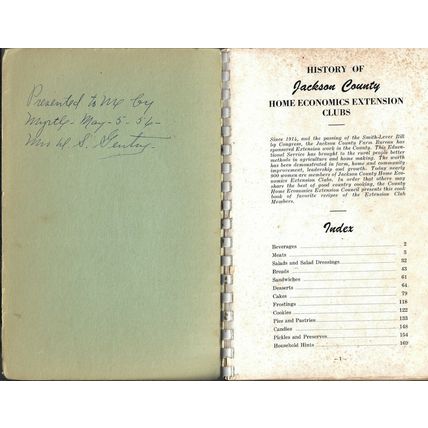 Presented to me by
Myrtle - May - 5 - 56 -
Mrs W. S. Gentry -
HISTORY OF
Jackson County
HOME ECONOMICS EXTENSION
CLUBS
Since 1914, and the passing of the Smith-Lever Bill
by Congress, the Jackson County Farm Bureau has
sponsored Extension work in the County. This Educa-
tional Service has brought to the rural people better
methods in agriculture and home making. The worth
has been demonstrated in farm, home and community
improvement, leadership and growth. Today nearly
900 women are members of Jackson County Home Eco-
nomics Extension Clubs. In order that others may
share the best of good country cooking, the County
Home Economics Extension Council presents this cook
book of favorite recipes of the Extension Club
Members.
Index
Beverages 2
Meats 5
Salads and Salad Dressings 32
Breads 43
Sandwiches 61
Desserts 64
Cakes 79
Frostings 118
Cookies 122
Pies and Pastries 133
Candies 148
Pickles and Preserves 154
Household Hints 169
-1-